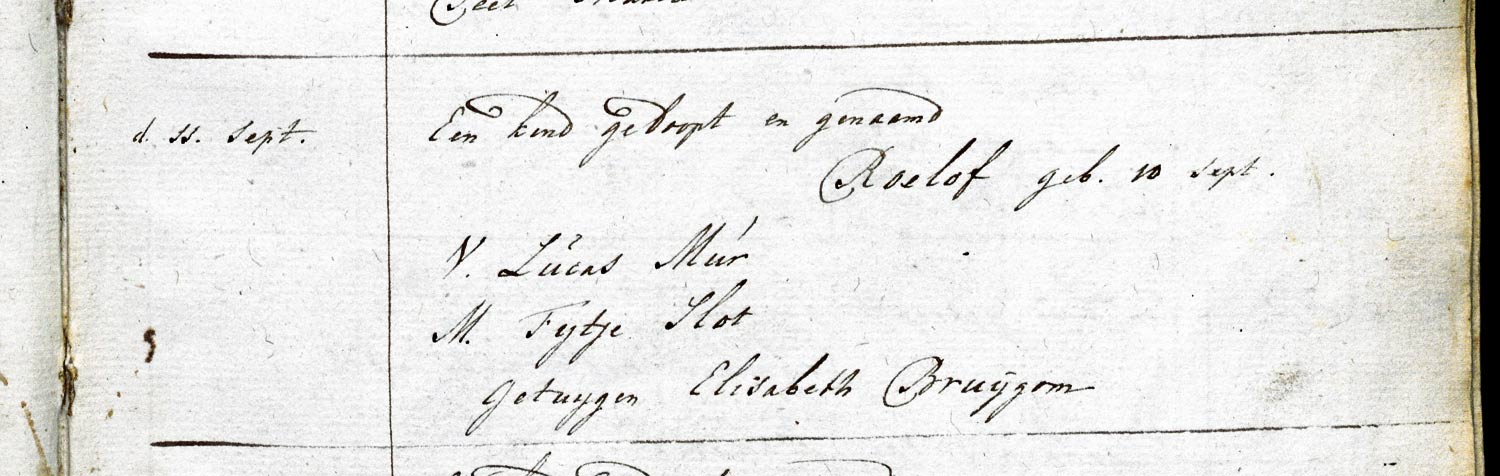 d. 11. Sept.
Een kind gedoopt en genaamd
Roelof geb. 10 Sept.
V. Lúcas Múr
M. Fijtje Slot
Getuygen Elisabeth Bruÿgom